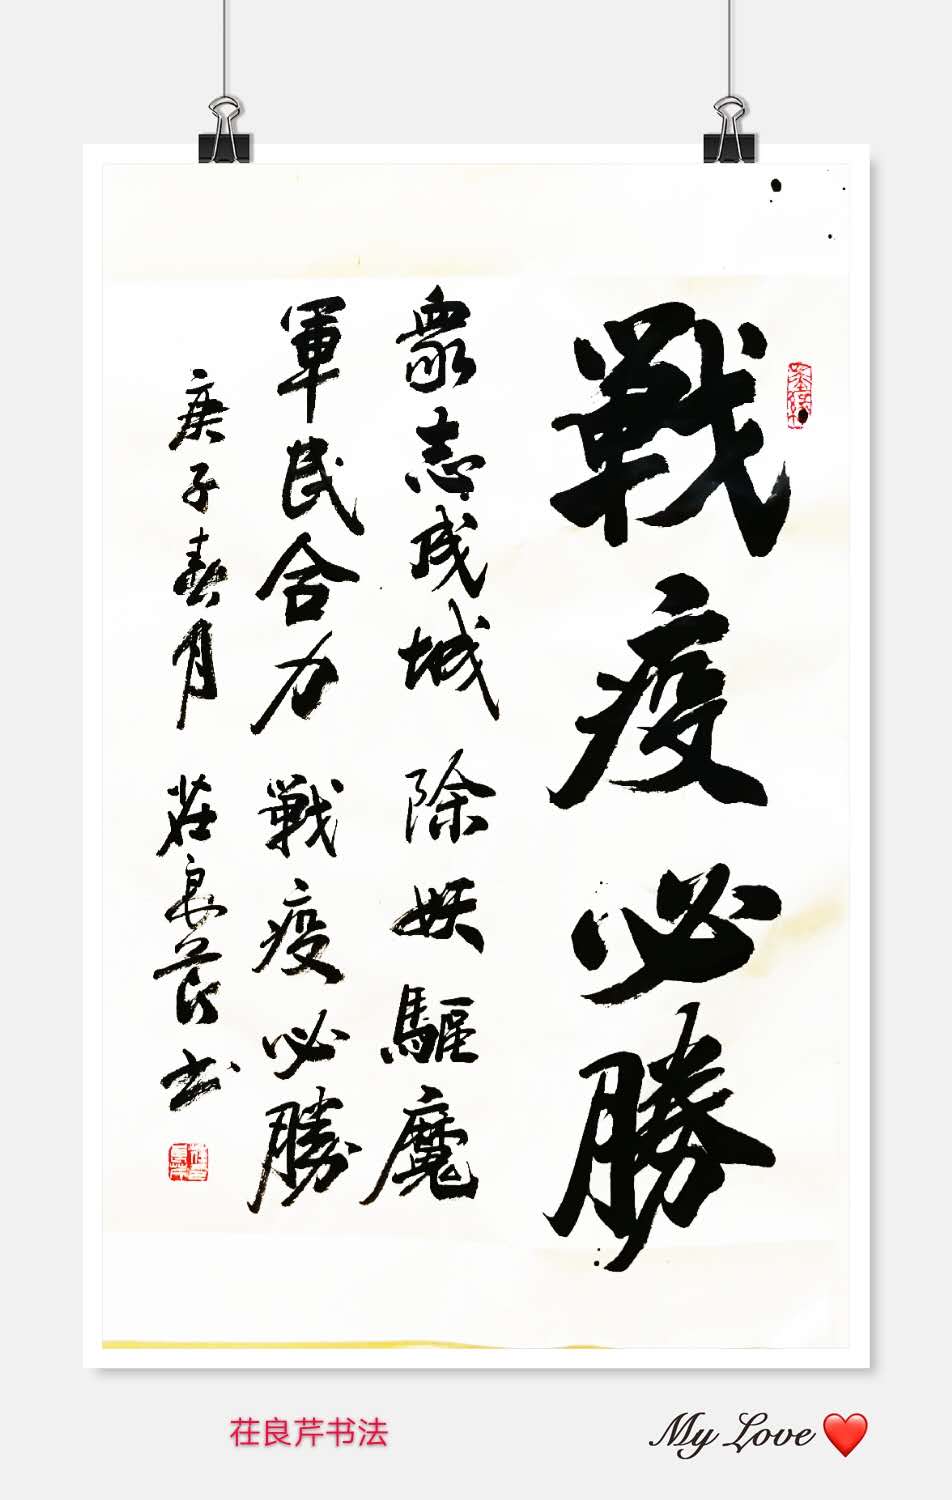 戰疫必勝
衆志成城 除妖驅魔
軍民合力 戰疫必勝
庚子春月 茌良芹书
茌良芹书法
My Love